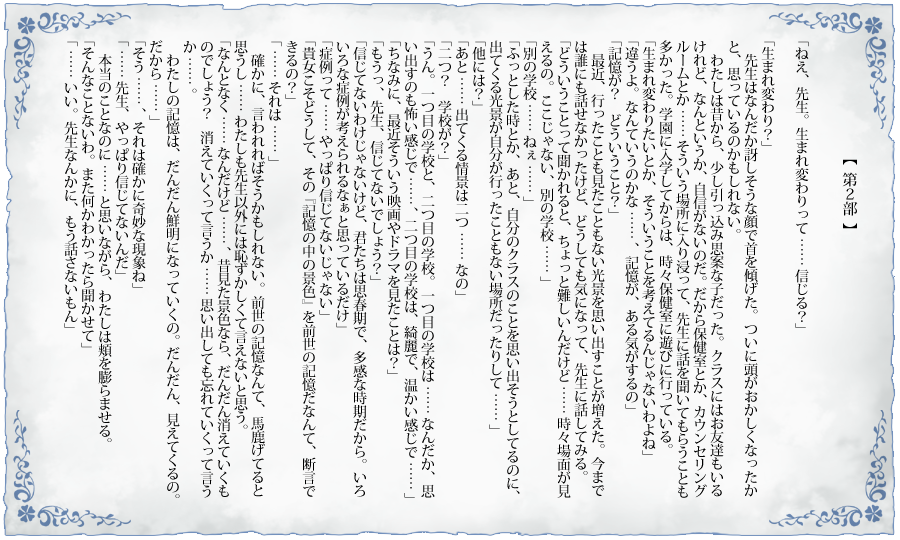 【第２部】
「ねえ、先生。生まれ変わりって……信じる？」
「生まれ変わり？」
　先生はなんだか訝しそうな顔で首を傾げた。ついに頭がおかしくなったか
と、思っているのかもしれない。
　わたしは昔から、少し引っ込み思案な子だった。クラスにはお友達もいる
けれど、なんというか、自信がないのだ。だから保健室とか、カウンセリング
ルームとか……そういう場所に入り浸って、先生に話を聞いてもらうことも
多かった。学園に入学してからは、時々保健室に遊びに行っている。
「生まれ変わりたいとか、そういうことを考えてるんじゃないわよね」
「違うよ。なんていうのかな……、記憶が、ある気がするの」
「記憶が？　どういうこと？」
　最近、行ったことも見たこともない光景を思い出すことが増えた。今まで
は誰にも話せなかったけど、どうしても気になって、先生に話してみる。
「どういうことって聞かれると、ちょっと難しいんだけど……時々場面が見
えるの。ここじゃない、別の学校……」
「別の学校……ねぇ……」
「ふっとした時とか、あと、自分のクラスのことを思い出そうとしてるのに、
出てくる光景が自分が行ったこともない場所だったりして……」
「他には？」
「あと……出てくる情景は二つ……なの」
「二つ？　学校が？」
「うん。一つ目の学校と、二つ目の学校。一つ目の学校は……なんだか、思
い出すのも怖い感じで……、二つ目の学校は、綺麗で、温かい感じで……」
「ちなみに、最近そういう映画やドラマを見たことは？」
「もうっ、先生、信じてないでしょう？」
「信じてないわけじゃないけど、君たちは思春期で、多感な時期だから。いろ
いろな症例が考えられるなぁと思っているだけ」
「症例って……やっぱり信じてないじゃない」
「貴女こそどうして、その『記憶の中の景色』を前世の記憶だなんて、断言で
きるの？」
「……それは……」
　確かに、言われればそうかもしれない。前世の記憶なんて、馬鹿げてると
思うし……わたしも先生以外には恥ずかしくて言えないと思う。
「なんとなく……なんだけど……、昔見た景色なら、だんだん消えていくも
のでしょう？　消えていくって言うか……思い出しても忘れていくって言う
か……。
　わたしの記憶は、だんだん鮮明になっていくの。だんだん、見えてくるの。
だから……」
「そう……、それは確かに奇妙な現象ね」
「……先生、やっぱり信じてないんだ」
　本当のことなのに……と思いながら、わたしは頬を膨らませる。
「そんなことないわ。また何かわかったら聞かせて」
「……いい。先生なんかに、もう話さないもん」